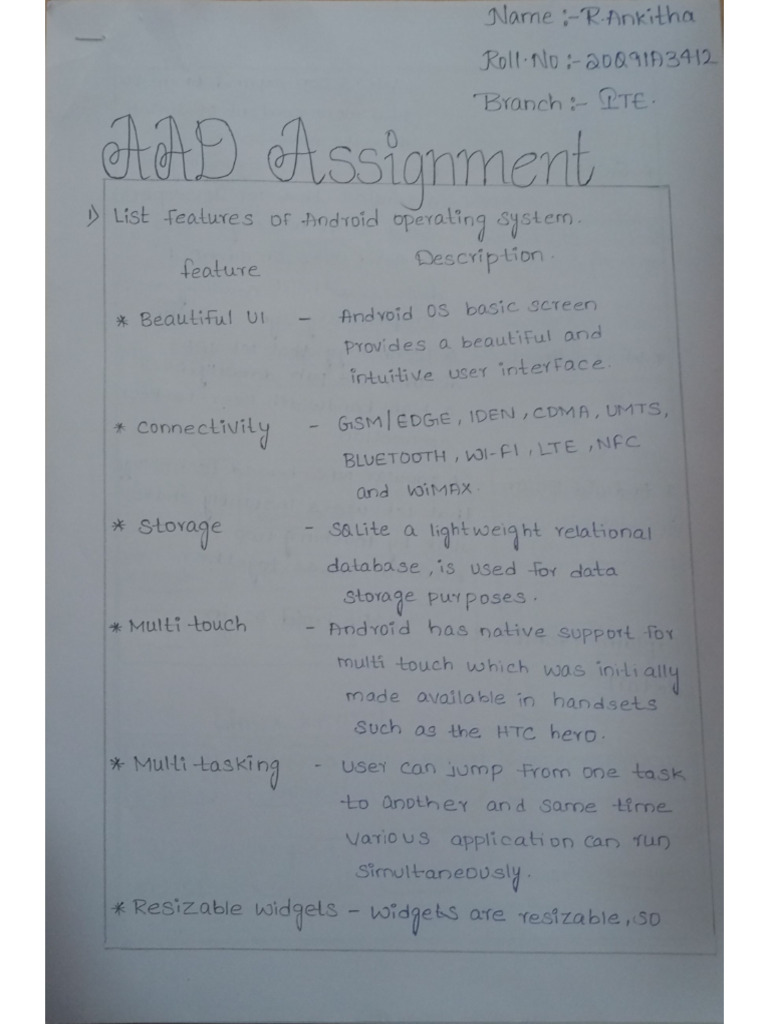 Name :- R.Ankitha
Roll.No :- 20Q91A3412
Branch :- ITE.
AAD Assignment
1) List features of Android operating system.
feature Description.
* Beautiful UI - Android OS basic screen
provides a beautiful and
intuitive user interface.
* Connectivity - GSM/EDGE, IDEN, CDMA, UMTS,
BLUETOOTH, WI-FI, LTE, NFC
and WiMAX.
* Storage - SQLite a lightweight relational
database, is used for data
storage purposes.
* Multi touch - Android has native support for
multi touch which was initially
made available in handsets
such as the HTC hero.
* Multi-tasking - User can jump from one task
to another and same time
various application can run
simultaneously.
* Resizable widgets - widgets are resizable, so